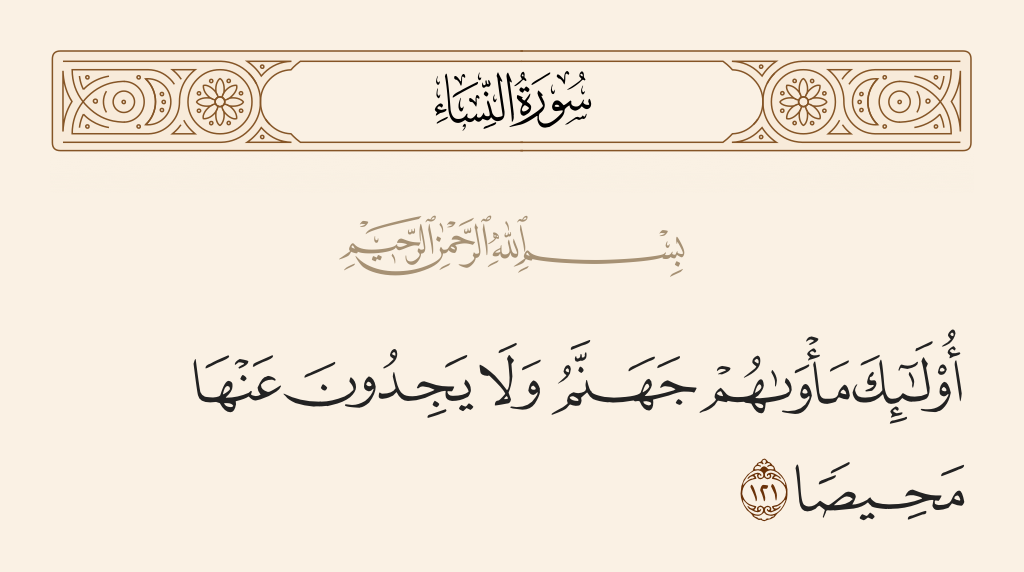 سُورَةُ النِّسَاءِ
بِسْمِ ٱللَّهِ ٱلرَّحْمَٰنِ ٱلرَّحِيمِ
أُوْلَٰٓئِكَ مَأْوَىٰهُمْ جَهَنَّمُ وَلَا يَجِدُونَ عَنْهَا
مَحِيصًا ١٢١